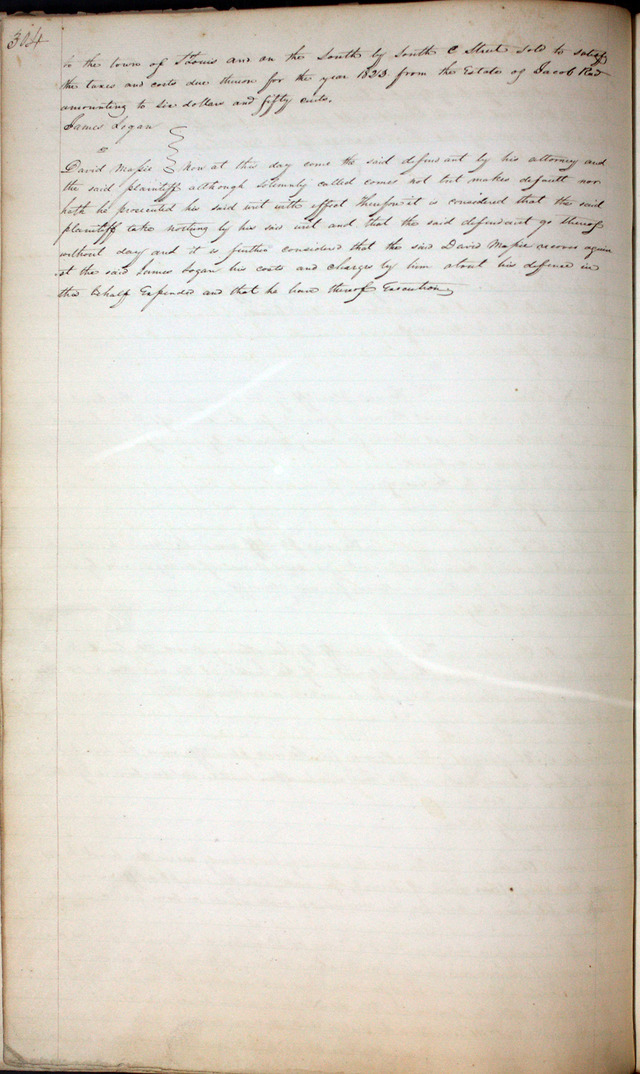 304
to the town of St Louis and on the South by South C Street sold to satisfy
the taxes and costs due thereon for the year 1823 from the Estate of Jacob
amounting to six dollars and fifty cents.
James Logan
David Massie Now at this day come the said defendant by his attorney and
the said plaintiff although solemnly called comes not but makes default nor
hath he prosecuted his said writ with effect Therefore it is considered that the said
plaintiff take nothing by his said writ and that the said defendant go thereof
without day and it is further considered that the said David Massie recover again
st the said James Logan his costs and charges by him about his defense in
this behalf Expended and that he have thereof Execution